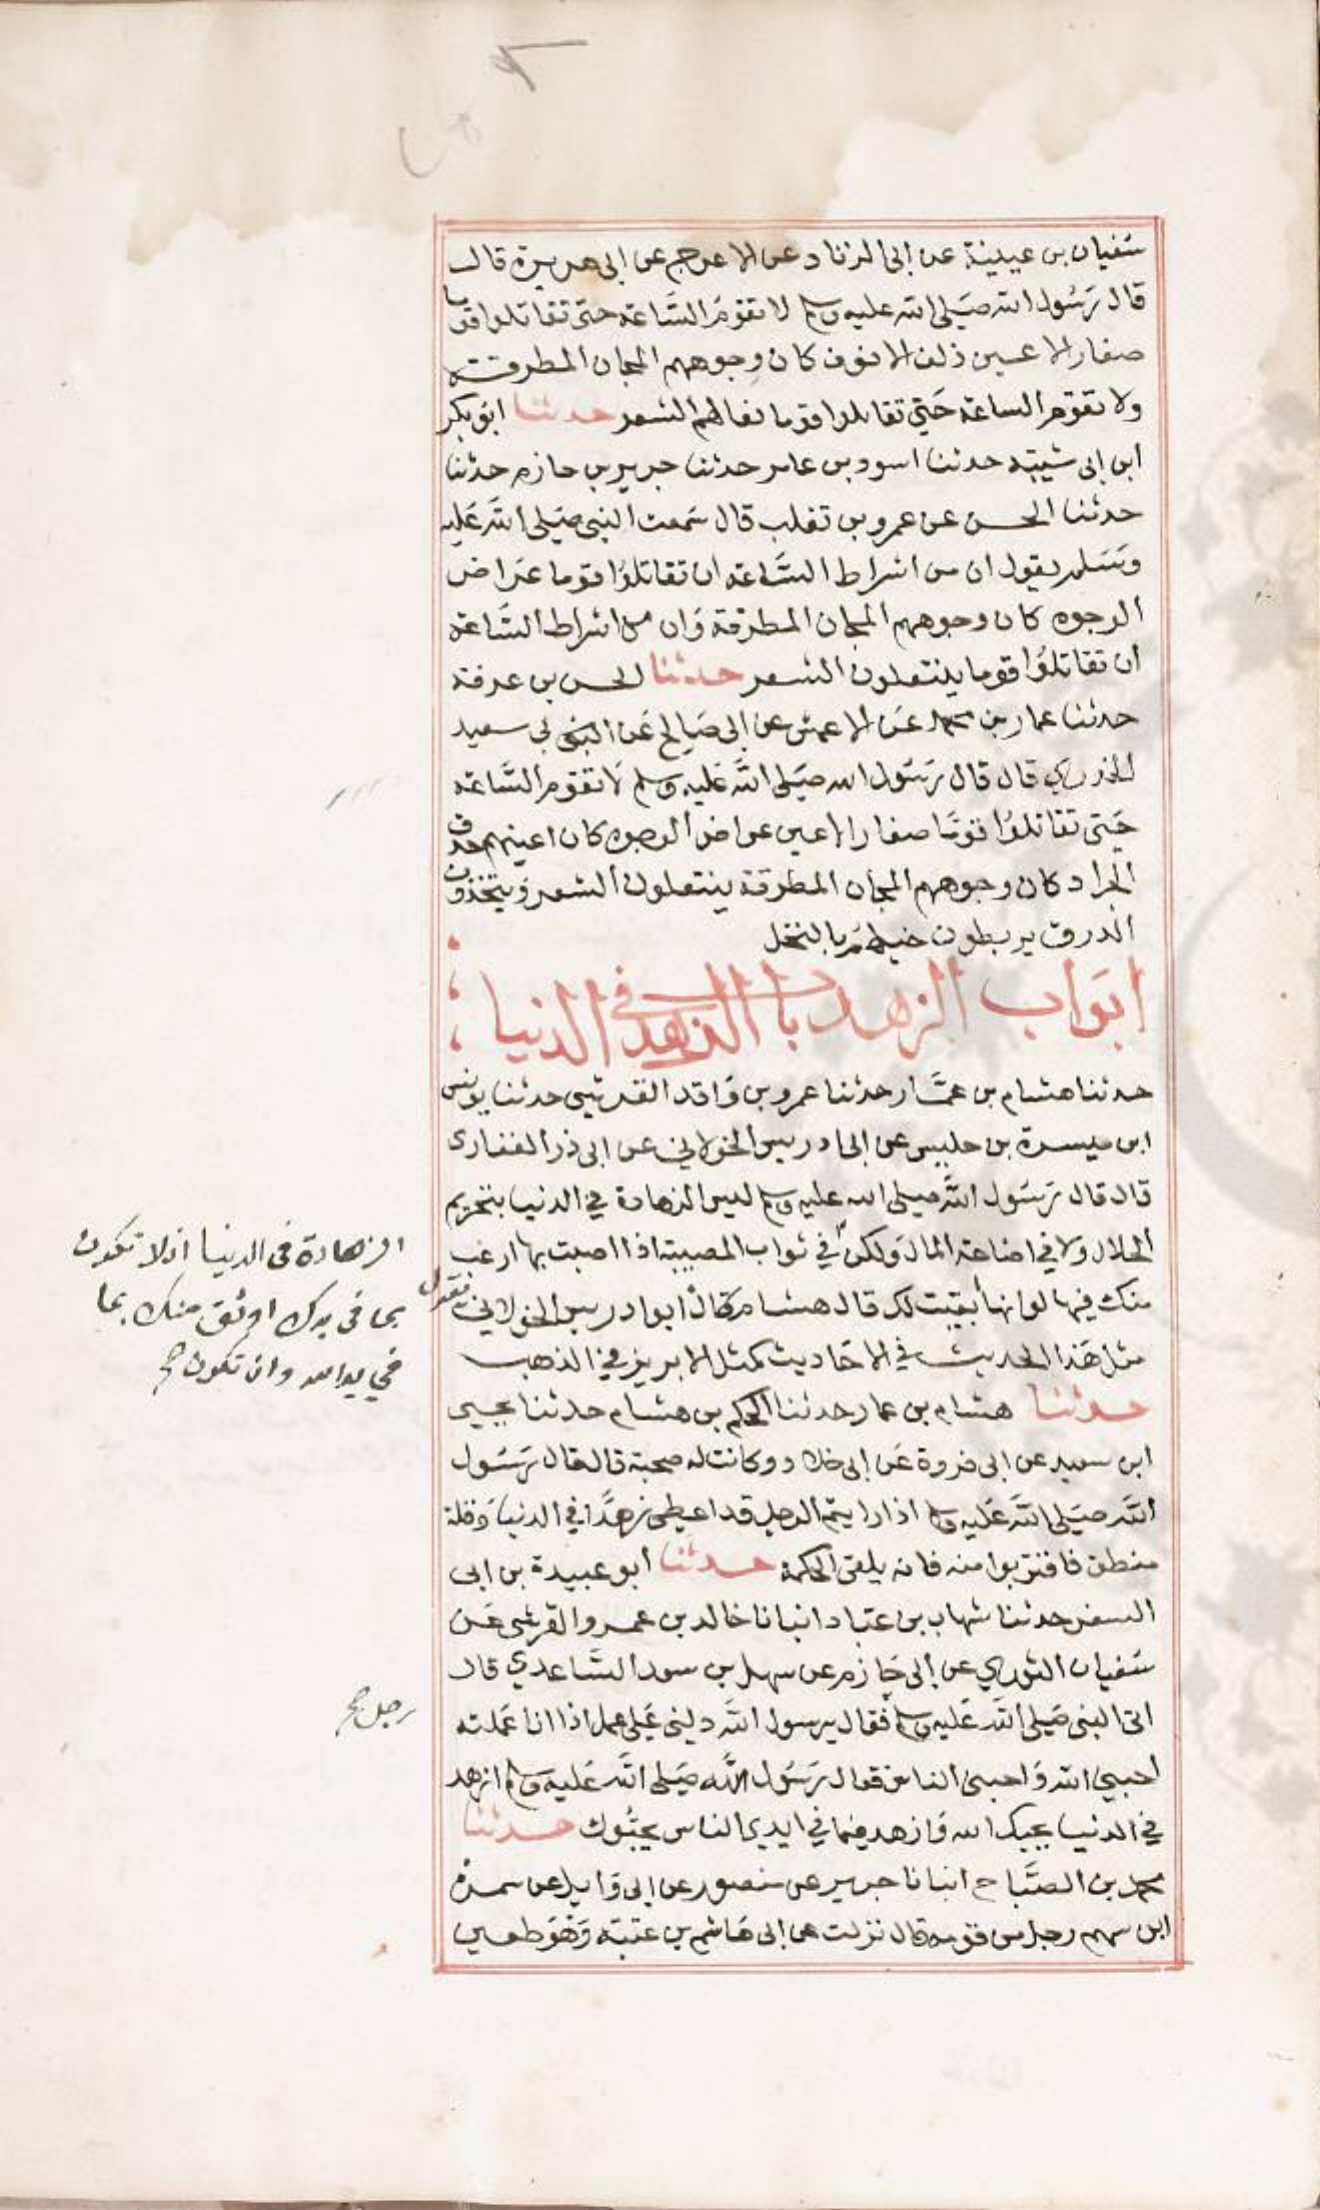 سفيان بن عيينة عن ابى الزناد عن الاعرج عن ابى هريرة قال
قال رسول الله صلى الله عليه وسلم لا تقوم الساعة حتى تقاتلوا قوما
صغار الاعين ذلف الانوف كان وجوههم المجان المطرقة
ولا تقوم الساعة حتى تقاتلوا قوما نعالهم الشعر حدثنا ابو بكر
ابن ابى شيبة حدثنا اسود بن عامر حدثنا جرير بن حازم حدثنا
حدثنا الحسن عن عمرو بن تغلب قال سمعت النبى صلى الله عليه
وسلم يقول ان من اشراط الساعة ان تقاتلوا قوما عراض
الوجوه كان وجوههم المجان المطرقة وان من اشراط الساعة
ان تقاتلوا قوما ينتعلون الشعر حدثنا الحسن بن عرفة
حدثنا عمار بن محمد عن الاعمش عن ابى صالح عن ابى سعيد
الخدري قال قال رسول الله صلى الله عليه وسلم لا تقوم الساعة
حتى تقاتلوا قوما صغار الاعين عراض الوجوه كان اعينهم حدق
الجراد كان وجوههم المجان المطرقة ينتعلون الشعر ويتخذون
الدرق يربطون خيلهم بالنخل
ابواب الزهد باب الزهد فى الدنيا
حدثنا هشام بن عمار حدثنا عمرو بن واقد القرشى حدثنا يونس
ابن ميسرة بن حلبس عن ابى ادريس الخولاني عن ابى ذر الغفارى
قال قال رسول الله صلى الله عليه وسلم ليس الزهادة في الدنيا بتحريم
الحلال ولا في اضاعة المال ولكن في ثواب المصيبة اذا اصبت بها ارغب
منك فيها لو انها ابقيت لك قال هشام كان ابو ادريس الخولاني يقول
مثل هذا الحديث في الاحاديث كمثل الابريز في الذهب
حدثنا هشام بن عمار حدثنا الحكم بن هشام حدثنا يحيى
ابن سعيد عن ابى فروة عن ابى خلاد وكانت له صحبة قال قال رسول
الله صلى الله عليه وسلم اذا رايتم الرجل قد اعطى زهدا في الدنيا وقلة
منطق فاقتربوا منه فانه يلقى الحكمة حدثنا ابو عبيدة بن ابى
السفر حدثنا شهاب بن عباد انبانا خالد بن عمرو القرشى عن
سفيان الثوري عن ابى حازم عن سهل بن سعد الساعدي قال
اتى النبى صلى الله عليه وسلم فقال يرسول الله دلنى على عمل اذا انا عملته
احبني الله واحبنى الناس فقال رسول الله صلى الله عليه وسلم ازهد
في الدنيا يحبك الله وازهد فيما في ايدى الناس يحبوك حدثنا
محمد بن الصباح انبانا جرير عن منصور عن ابى وايل عن سمرة
ابن سهم رجل من قومه قال نزلت على ابى هاشم بن عتبة وهو طعين
الزهادة فى الدنيا ان لا تكون
بما فى يدك اوثق منك بما
في يد الله وان تكون صح
رجل صح